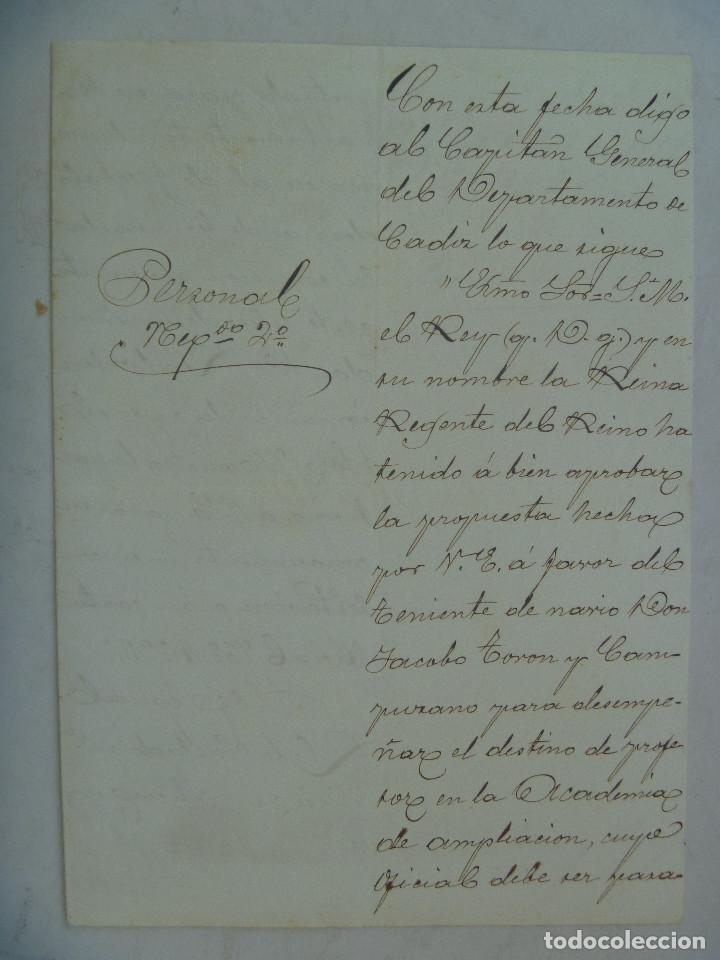 Personal
Negdo 2º
Con esta fecha digo
al Capitán General
del Departamento de
Cadiz lo que sigue
"Exmo Sor= S. M.
el Rey (q. D. g.) y en
su nombre la Reina
Regente del Reino ha
tenido á bien aprobar
la propuesta hecha
por V. E. á favor del
teniente de navio Don
Jacobo Toron y Cam-
puzano para desempe-
ñar el destino de profe-
sor en la Academia
de ampliacion, cuyo
oficial debe ser pasa-
todocoleccion.net